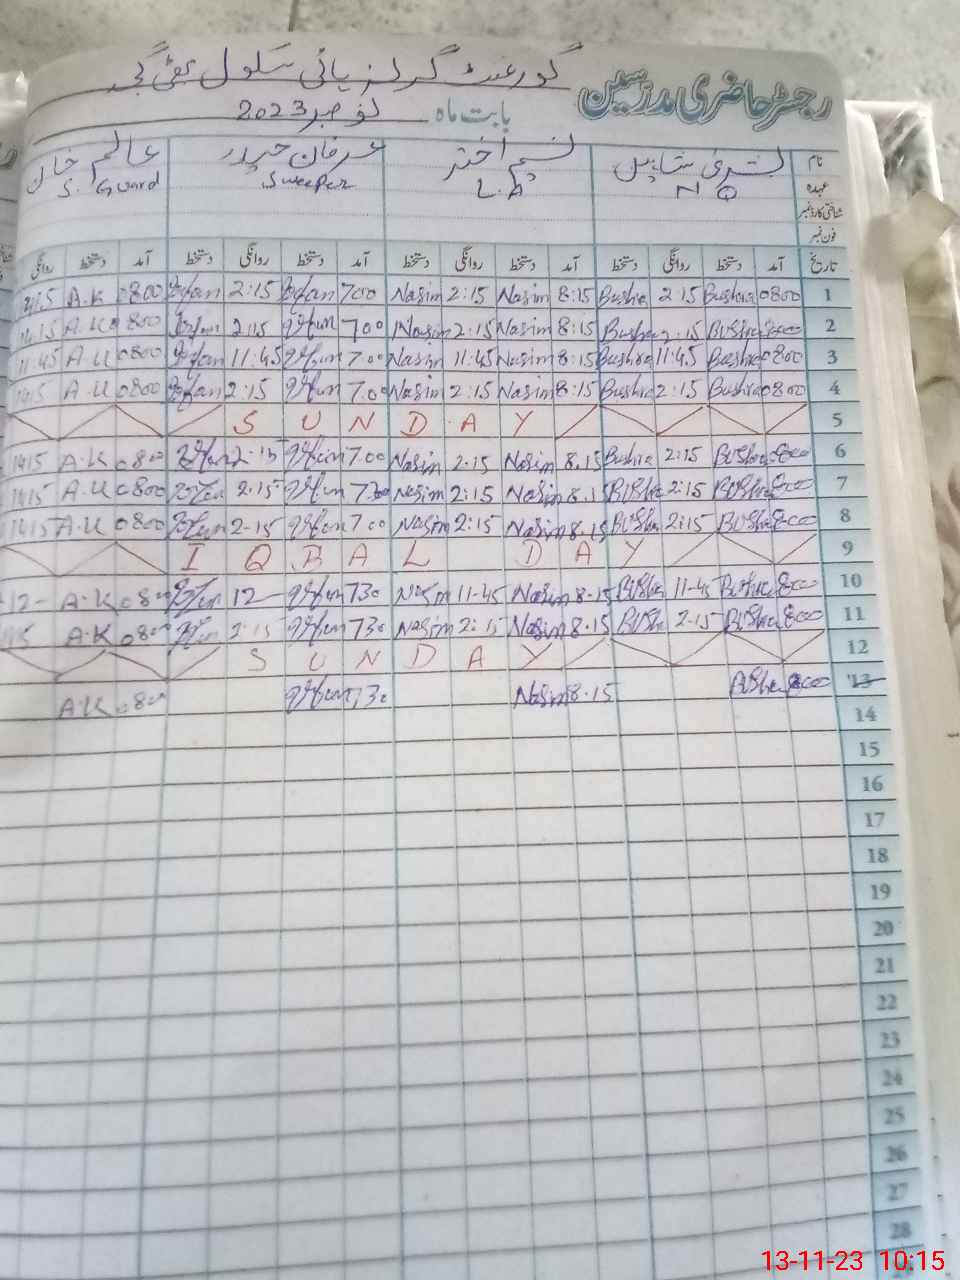 رجسٹر حاضری مدرسین
گورنمنٹ گرلز ہائی سکول
بابت ماہ نومبر 2023
نام بشریٰ نسیم اختر عرفان حیدر عالم خان
عہدہ N Q Sweeper S. Guard
شناختی کارڈ نمبر
فون نمبر
تاریخ آمد دستخط روانگی دستخط آمد دستخط روانگی دستخط آمد دستخط روانگی دستخط آمد دستخط روانگی
1 0800 Bushra 2:15 Bushra 8:15 Nasim 2:15 Nasim 700 Irfan 2:15 Irfan 0800 A.K
2 Bushra 2:15 Bushra 8:15 Nasim 2:15 Nasim 700 Irfan 2:15 Irfan 0800 A.K
3 0800 Bushra 11:45 Bushra 8:15 Nasim 11:45 Nasim 7.00 Irfan 11:45 Irfan 0800 A.K 11:45
4 0800 Bushra 2:15 Bushra 8:15 Nasim 2:15 Nasim 7.00 Irfan 2:15 Irfan 0800 A.K
5 SUNDAY
6 8:00 Bushra 2:15 Bushra 8.15 Nasim 2.15 Nasim 7.00 Irfan 2:15 Irfan 0800 A.K 1415
7 8:00 Bushra 2:15 Bushra 8.15 Nasim 2:15 Nasim 730 Irfan 2.15 Irfan 0800 A.K 1415
8 8:00 Bushra 2:15 Bushra 8.15 Nasim 2:15 Nasim 700 Irfan 2-15 Irfan 0800 A.K 1415
9 IQBAL DAY
10 8:00 Bushra 11-45 Bushra 8.15 Nasim 11-45 Nasim 730 Irfan 12 Irfan 0800 A.K 12-
11 8:00 Bushra 2-15 Bushra 8.15 Nasim 2:15 Nasim 730 Irfan 2:15 Irfan 0800 A.K
12 SUNDAY
13 8:00 Bushra 8.15 Nasim 730 Irfan 0800 A.K
14
15
16
17
18
19
20
21
22
23
24
25
26
27
28
13-11-23 10:15